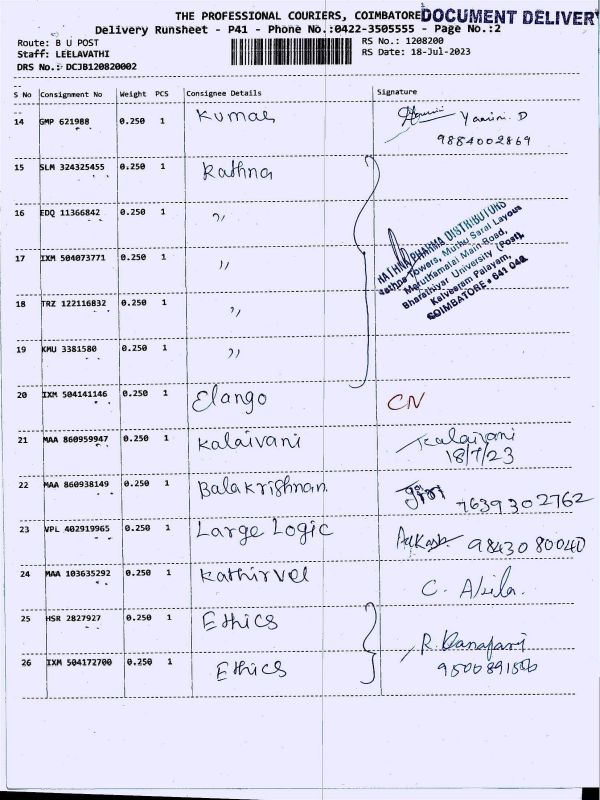 THE PROFESSIONAL COURIERS, COIMBATORE DOCUMENT DELIVERY
Delivery Runsheet - P41 - Phone No.:0422-3505555 - Page No.:2
Route: B U POST RS No.: 1208200
Staff: LEELAVATHI RS Date: 18-Jul-2023
DRS No.: DCJB120820002
S No Consignment No Weight PCS Consignee Details Signature
14 GMP 621988 0.250 1 Kumar Yamini. D
9884002869
15 SLM 324325455 0.250 1 Rathna
16 EDQ 11366842 0.250 1 ,,
RATHNA PHARMA DISTRIBUTORS
Rathna Towers, Muthu Saral Layous
Marutkamalai Main-Road,
Bharathiyar University (Post),
Kalveeram Palayam,
COIMBATORE • 641 046
17 IXM 504073771 0.250 1 ,,
18 TRZ 122116832 0.250 1 ,,
19 KMU 3381580 0.250 1 ,,
20 IXM 504141146 0.250 1 Elango CN
21 MAA 860959947 0.250 1 Kalaivani Kalaivani
18/7/23
22 MAA 860938149 0.250 1 Balakrishnan. Giri 7639302762
23 VPL 402919965 0.250 1 Large Logic Aakash 98430 80040
24 MAA 103635292 0.250 1 Kathirvel C.
25 HSR 2827927 0.250 1 Ethics R.
26 IXM 504172700 0.250 1 Ethics